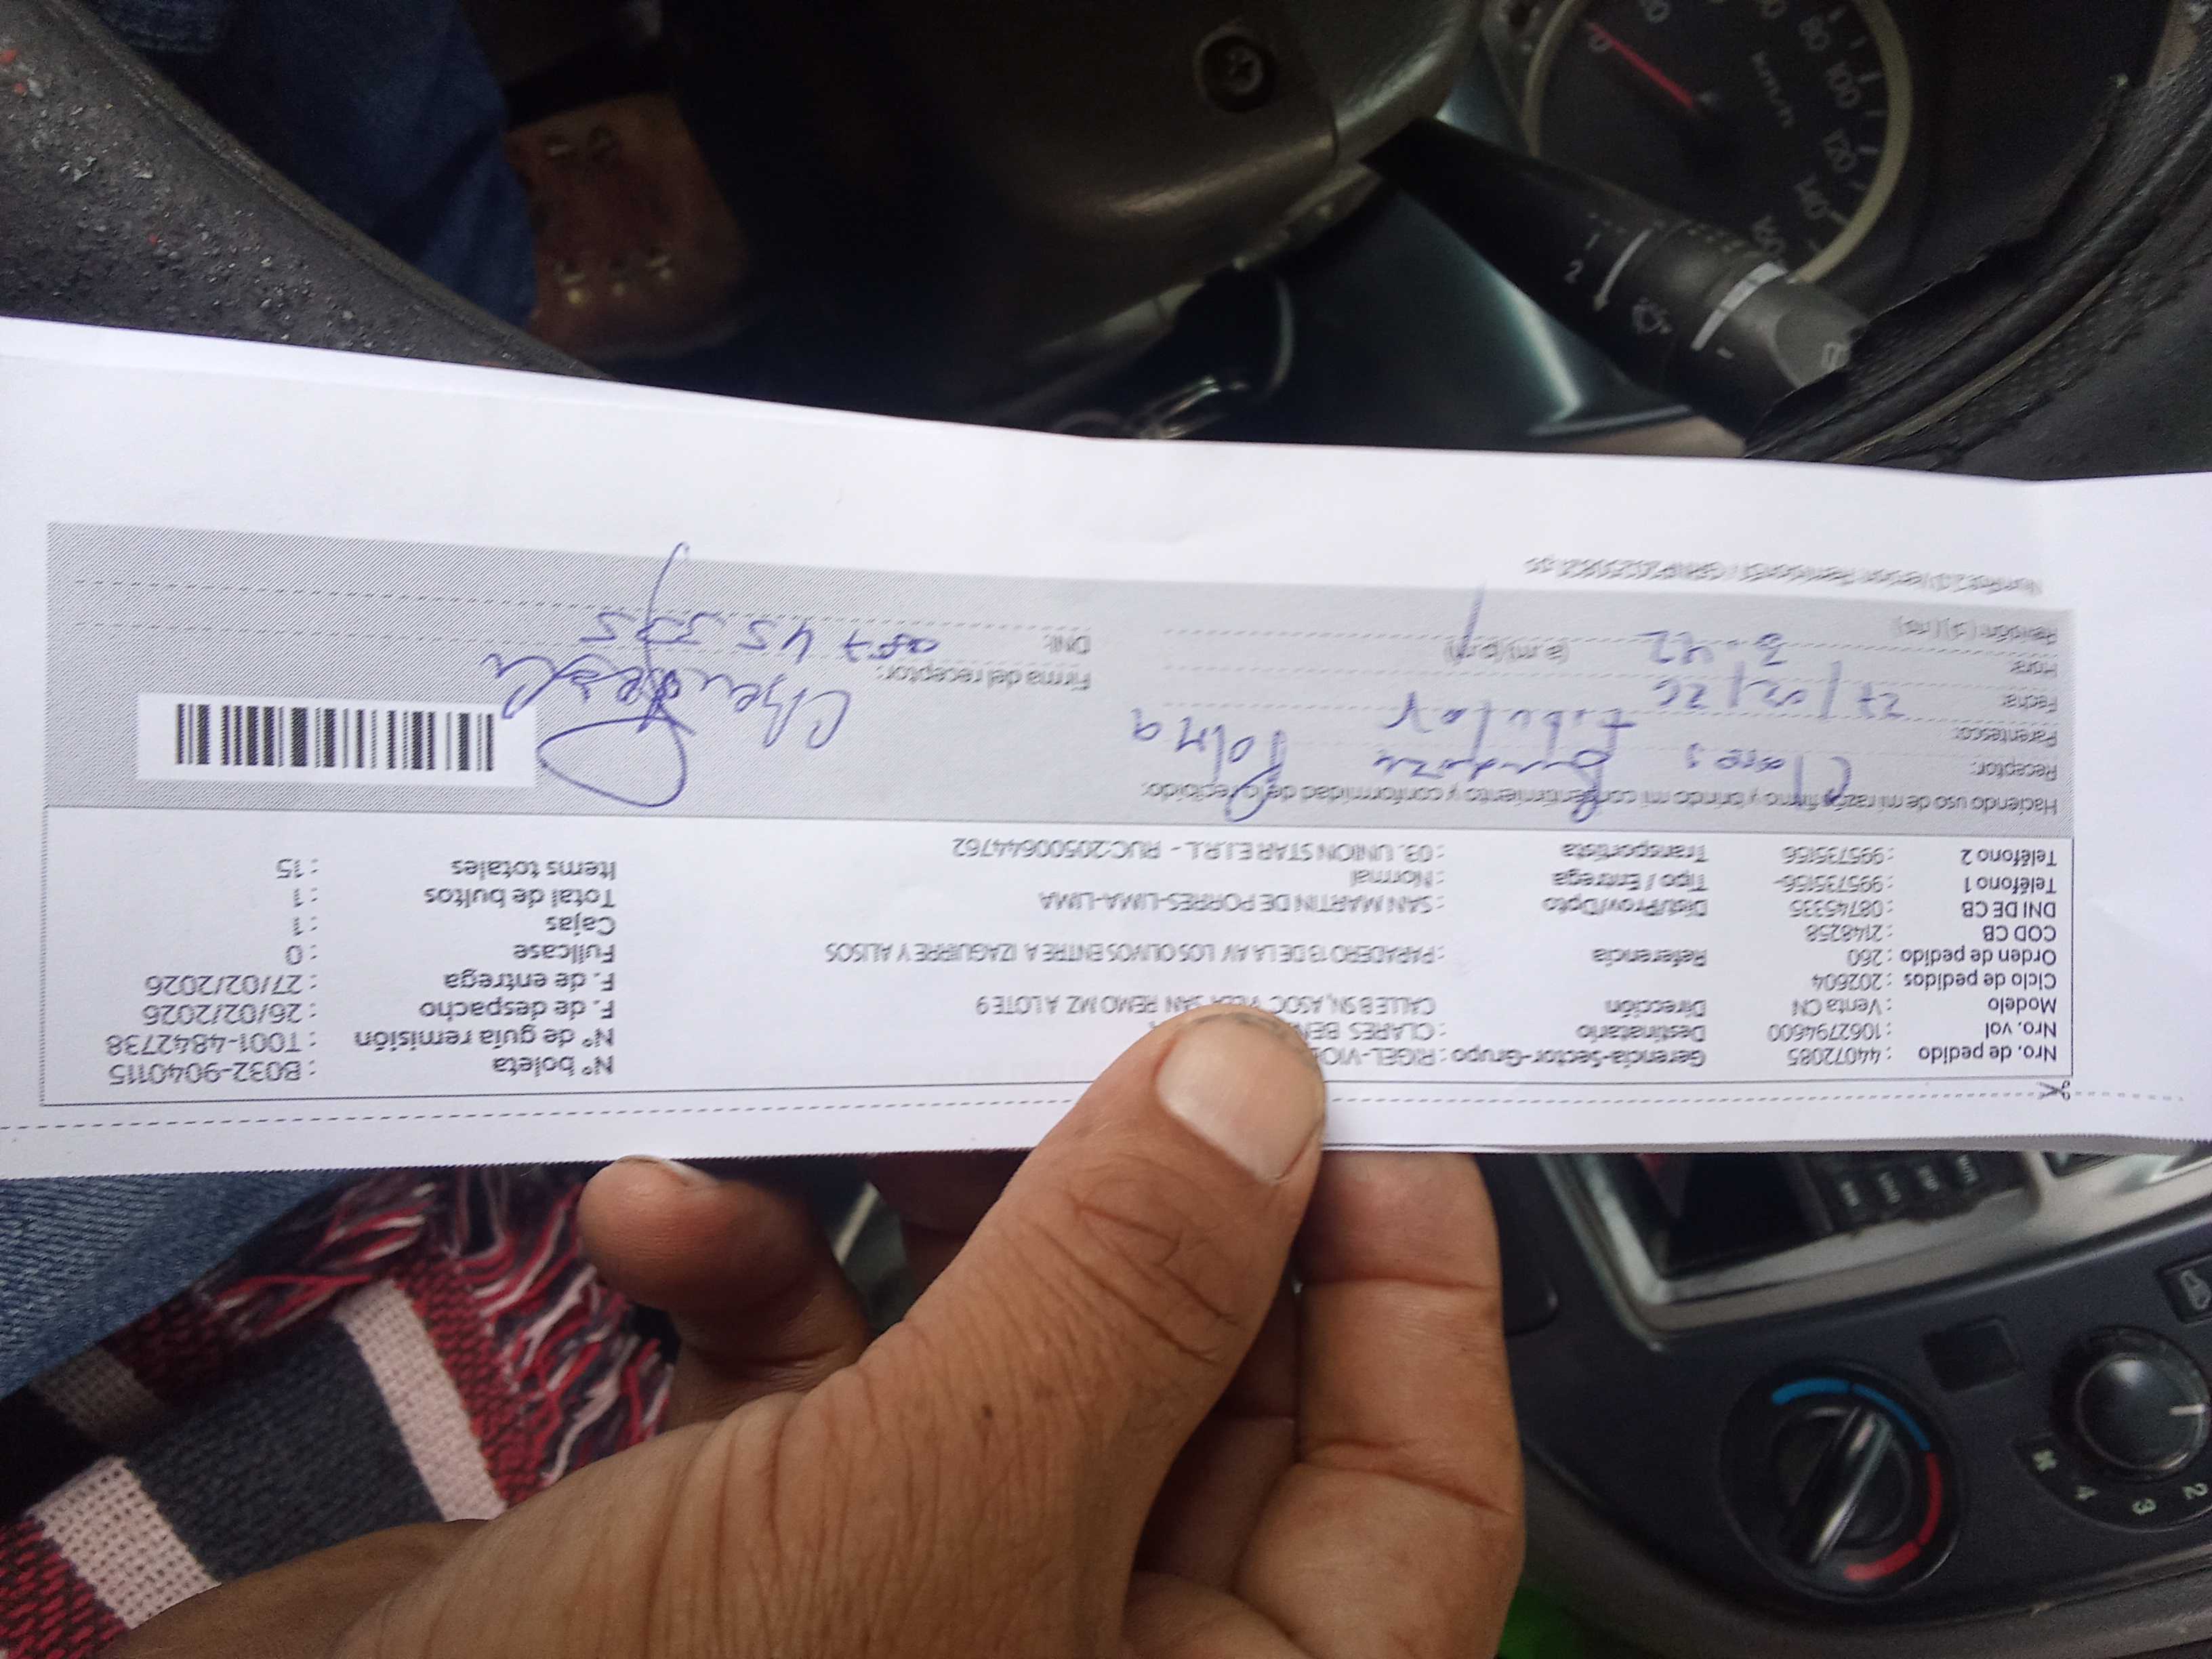 Nro. de pedido : 44072085
Nro. vol : 1062794600
Modelo : Venta CN
Ciclo de pedidos : 202604
Orden de pedido : 260
COD CB : 2148258
DNI DE CB : 08745335
Teléfono 1 : 995735156-
Teléfono 2 : 995735156
Gerencia-Sector-Grupo : RIGEL-VICE
Destinatario : CLARES
Dirección CALLE B SN, ASOC SAN REMO MZ A LOTE 9
Referencia : PARADERO 13 DE LA AV LOS OLIVOS ENTRE A IZAGUIRRE Y ALISOS
Dist/Prov/Dpto : SAN MARTIN DE PORRES-LIMA-LIMA
Tipo / Entrega : Normal
Transportista : 03. UNION STAR E.I.R.L. - RUC:20500644762
N° boleta : B032-9040115
N° de guía remisión : T001-4842738
F. de despacho : 26/02/2026
F. de entrega : 27/02/2026
Fullcase : 0
Cajas : 1
Total de bultos : 1
Items totales : 15
Haciendo uso de mi razón firmo y brindo mi consentimiento y conformidad de lo recibido:
Receptor: Clares
Parentesco: titular
Fecha: 27/02/26
Hora: 3:42 (a.m)/(p.m)
Revisión: (si) (no)
Firma del receptor:
DNI: 08745335